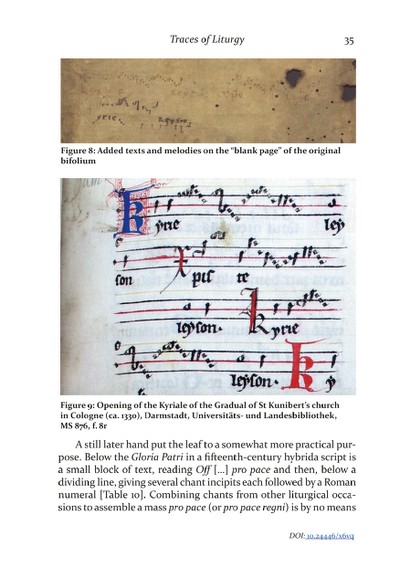 Traces of Liturgy 35
Figure 8: Added texts and melodies on the “blank page” of the original
bifolium
yrie
ley
son
pſ te
leyson. kyrie
leyson. k y
Figure 9: Opening of the Kyriale of the Gradual of St Kunibert’s church
in Cologne (ca. 1330), Darmstadt, Universitäts- und Landesbibliothek,
MS 876, f. 8r
A still later hand put the leaf to a somewhat more practical pur-
pose. Below the Gloria Patri in a fifteenth-century hybrida script is
a small block of text, reading Off [...] pro pace and then, below a
dividing line, giving several chant incipits each followed by a Roman
numeral [Table 10]. Combining chants from other liturgical occa-
sions to assemble a mass pro pace (or pro pace regni) is by no means
DOI: 10.24446/x6vq